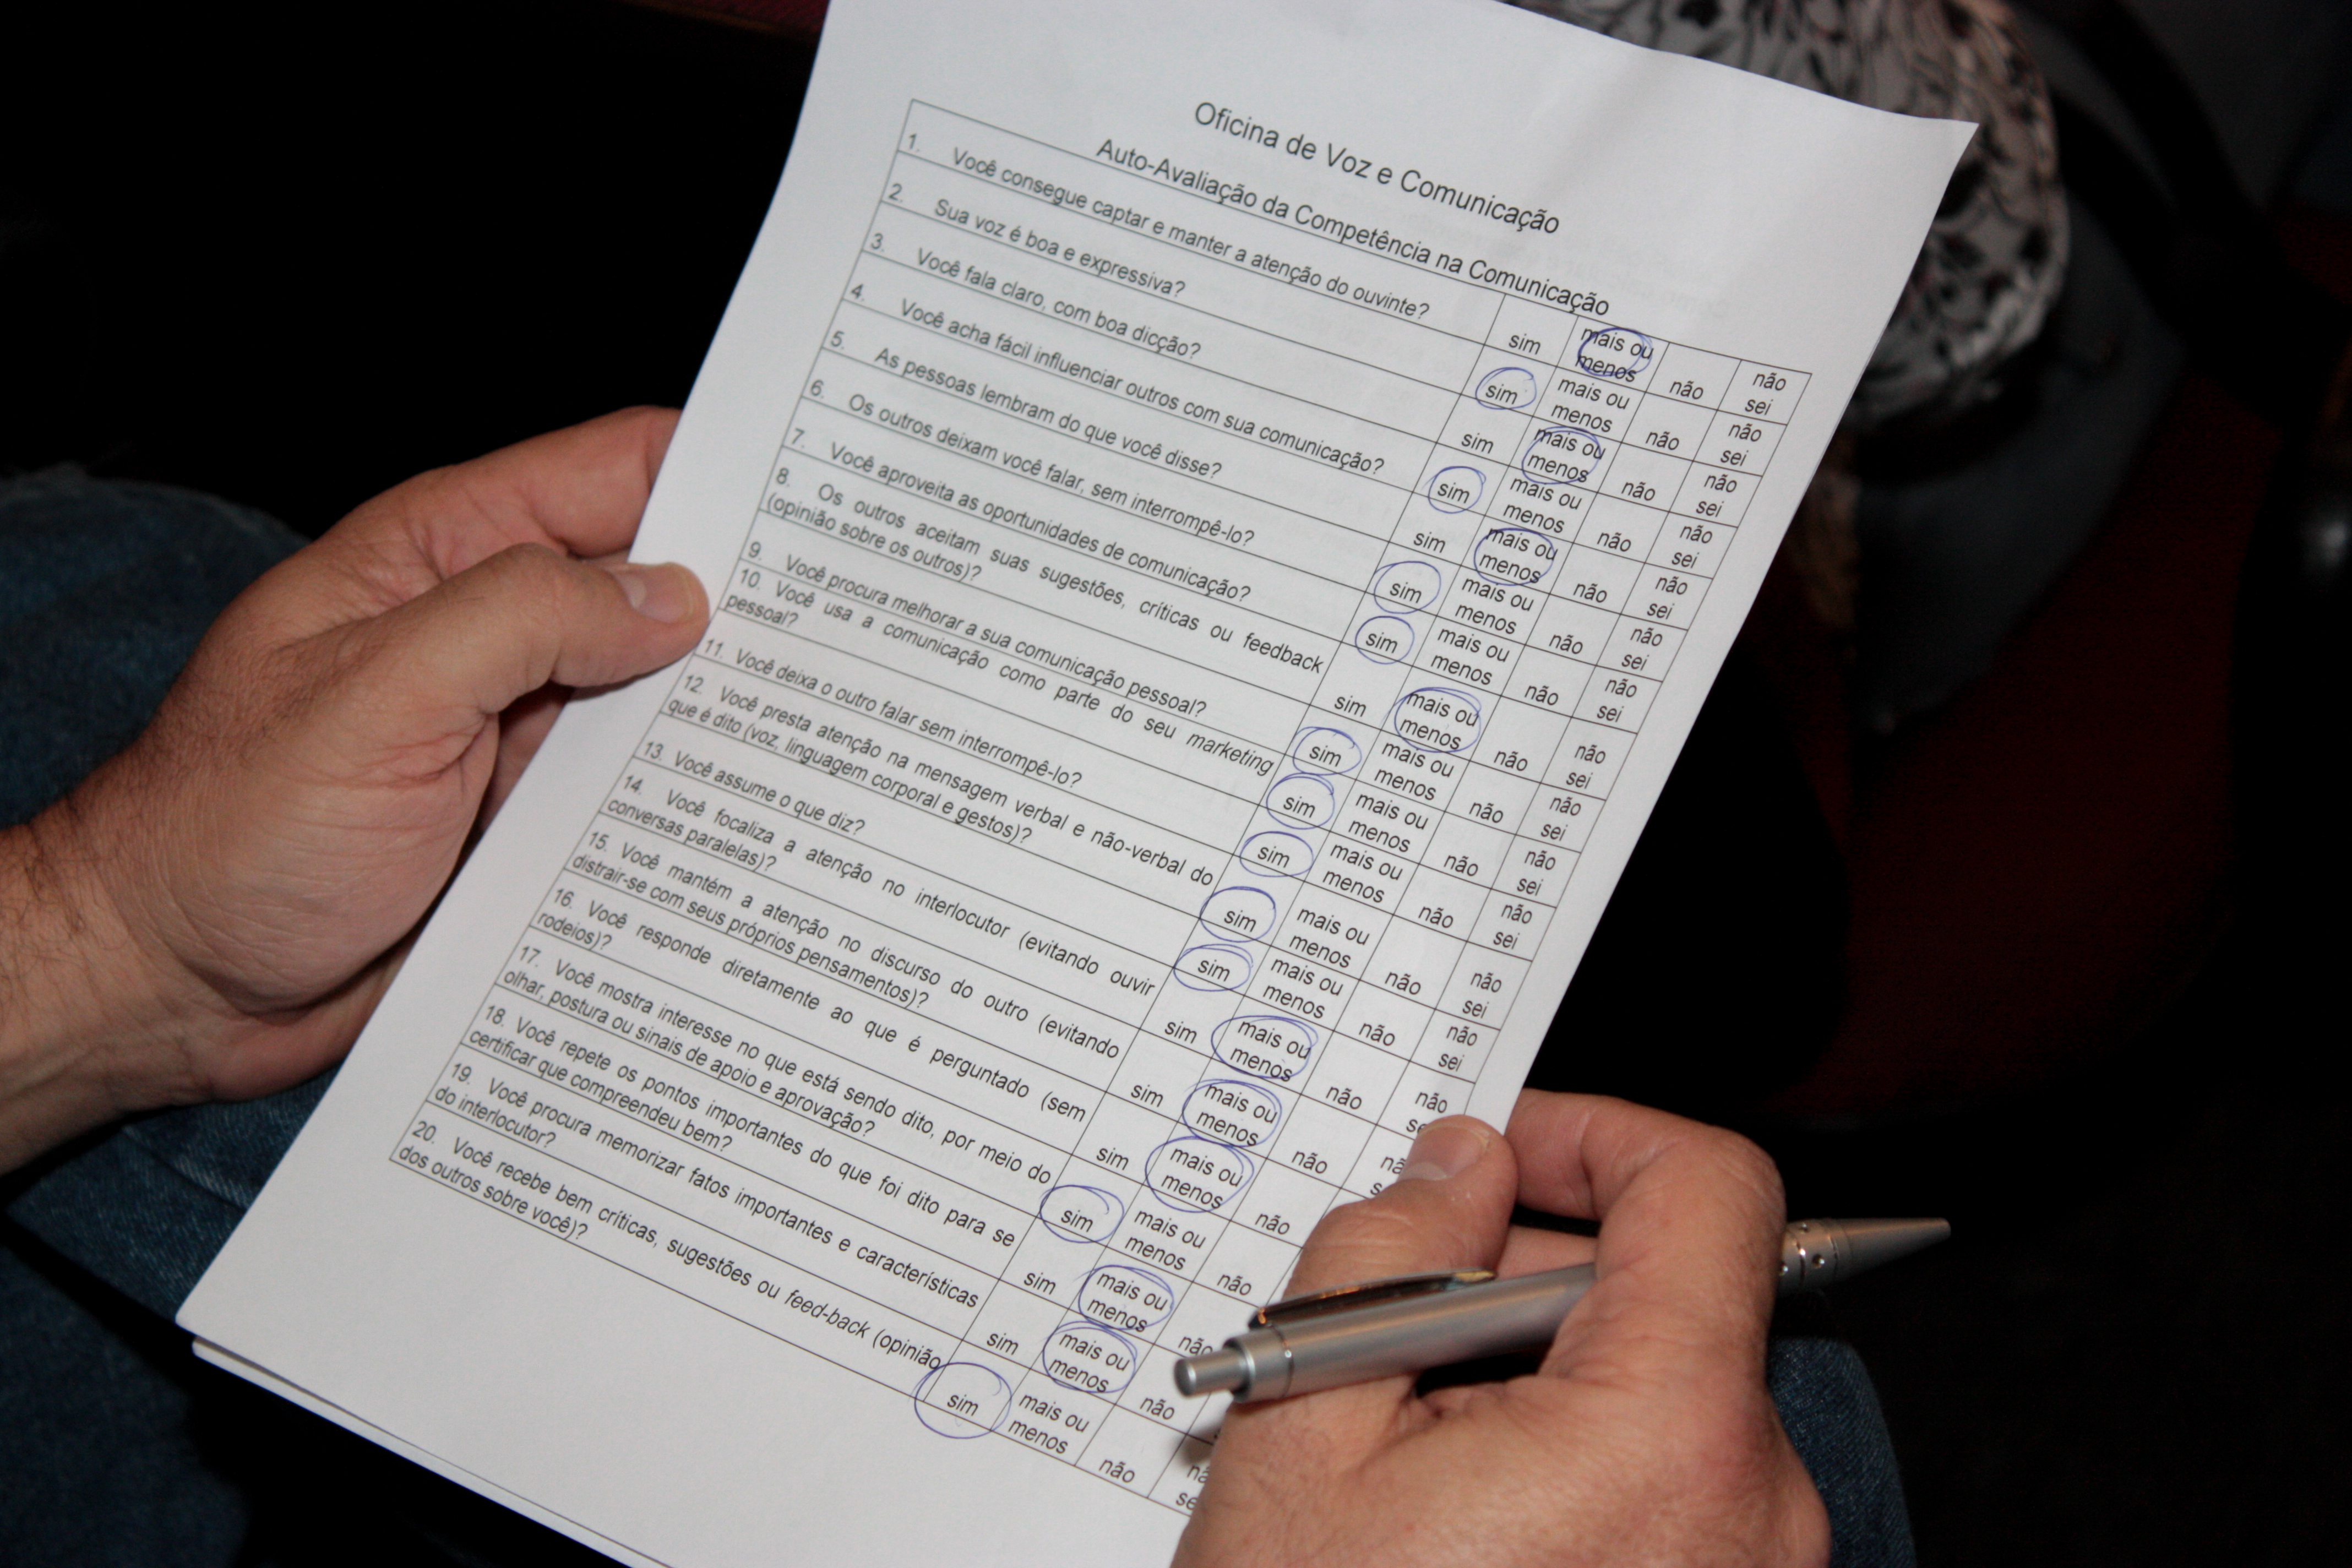 Oficina de Voz e Comunicação
Auto-Avaliação da Competência na Comunicação
1. Você consegue captar e manter a atenção do ouvinte? sim mais ou menos não não sei
2. Sua voz é boa e expressiva? sim mais ou menos não não sei
3. Você fala claro, com boa dicção? sim mais ou menos não não sei
4. Você acha fácil influenciar outros com sua comunicação? sim mais ou menos não não sei
5. As pessoas lembram do que você disse? sim mais ou menos não não sei
6. Os outros deixam você falar, sem interrompê-lo? sim mais ou menos não não sei
7. Você aproveita as oportunidades de comunicação? sim mais ou menos não não sei
8. Os outros aceitam suas sugestões, críticas ou feedback
(opinião sobre os outros)? sim mais ou menos não não sei
9. Você procura melhorar a sua comunicação pessoal? sim mais ou menos não não sei
10. Você usa a comunicação como parte do seu marketing
pessoal? sim mais ou menos não não sei
11. Você deixa o outro falar sem interrompê-lo? sim mais ou menos não não sei
12. Você presta atenção na mensagem verbal e não-verbal do
que é dito (voz, linguagem corporal e gestos)? sim mais ou menos não não sei
13. Você assume o que diz? sim mais ou menos não não sei
14. Você focaliza a atenção no interlocutor (evitando ouvir
conversas paralelas)? sim mais ou menos não não
15. Você mantém a atenção no discurso do outro (evitando
distrair-se com seus próprios pensamentos)? sim mais ou menos não
16. Você responde diretamente ao que é perguntado (sem
rodeios)? sim mais ou menos não
17. Você mostra interesse no que está sendo dito, por meio do
olhar, postura ou sinais de apoio e aprovação? sim mais ou menos não
18. Você repete os pontos importantes do que foi dito para se
certificar que compreendeu bem? sim mais ou menos não
19. Você procura memorizar fatos importantes e características
do interlocutor? sim mais ou menos não
20. Você recebe bem críticas, sugestões ou feed-back (opinião
dos outros sobre você)? sim mais ou menos não